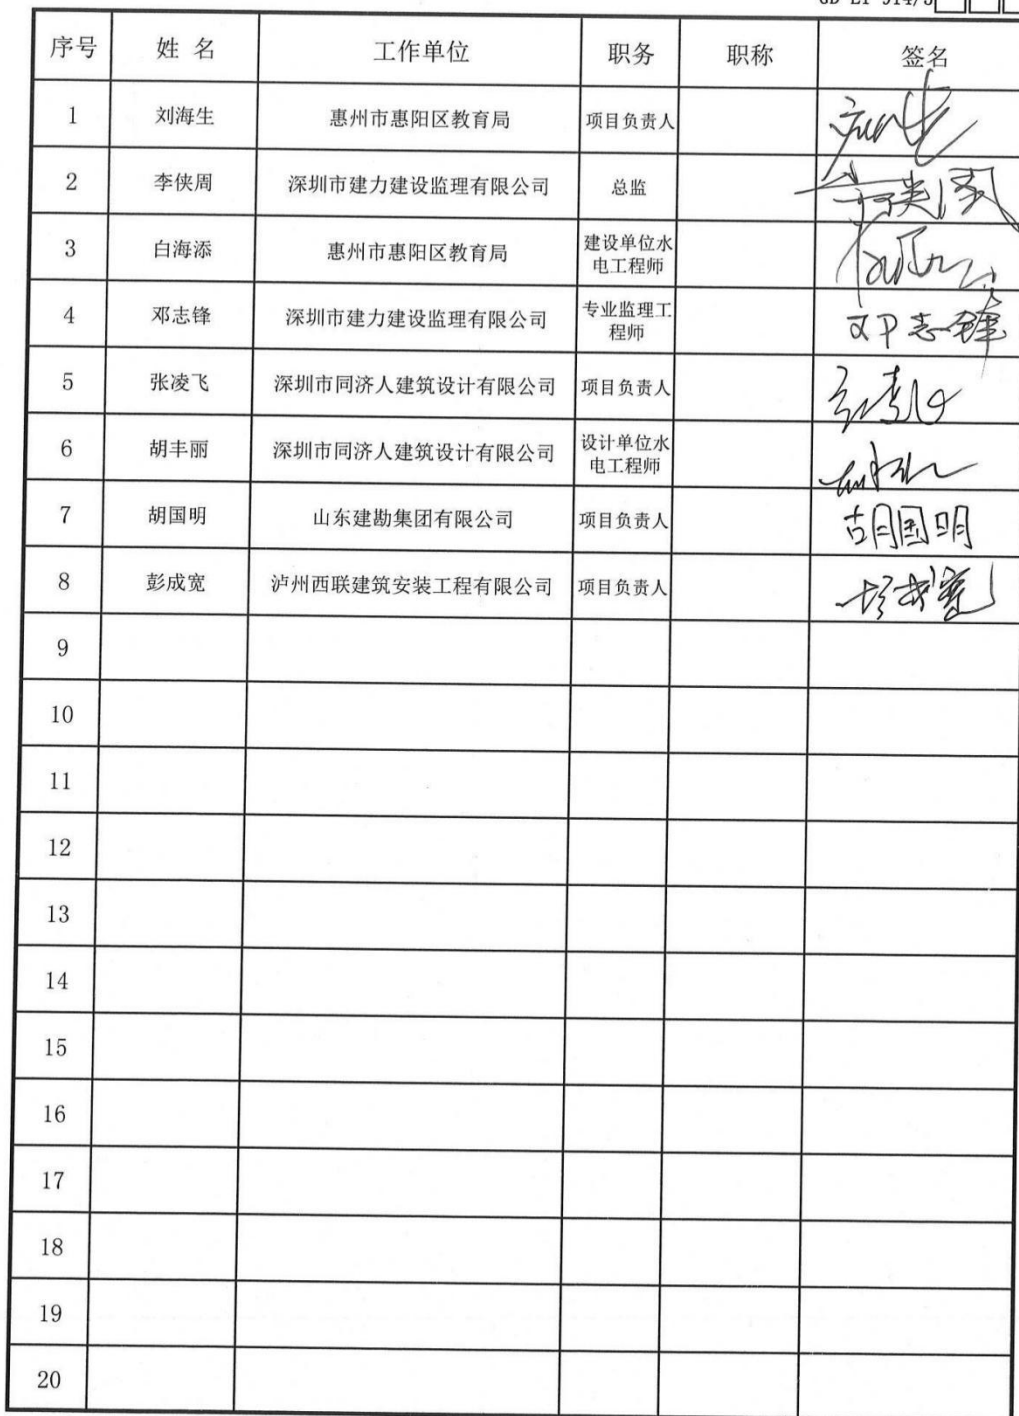 序号 姓 名 工作单位 职务 职称 签名
1 刘海生 惠州市惠阳区教育局 项目负责人
2 李侠周 深圳市建力建设监理有限公司 总监
3 白海添 惠州市惠阳区教育局 建设单位水
电工程师
4 邓志锋 深圳市建力建设监理有限公司 专业监理工
程师 邓志锋
5 张凌飞 深圳市同济人建筑设计有限公司 项目负责人
6 胡丰丽 深圳市同济人建筑设计有限公司 设计单位水
电工程师
7 胡国明 山东建勘集团有限公司 项目负责人 胡国明
8 彭成宽 泸州西联建筑安装工程有限公司 项目负责人
9
10
11
12
13
14
15
16
17
18
19
20